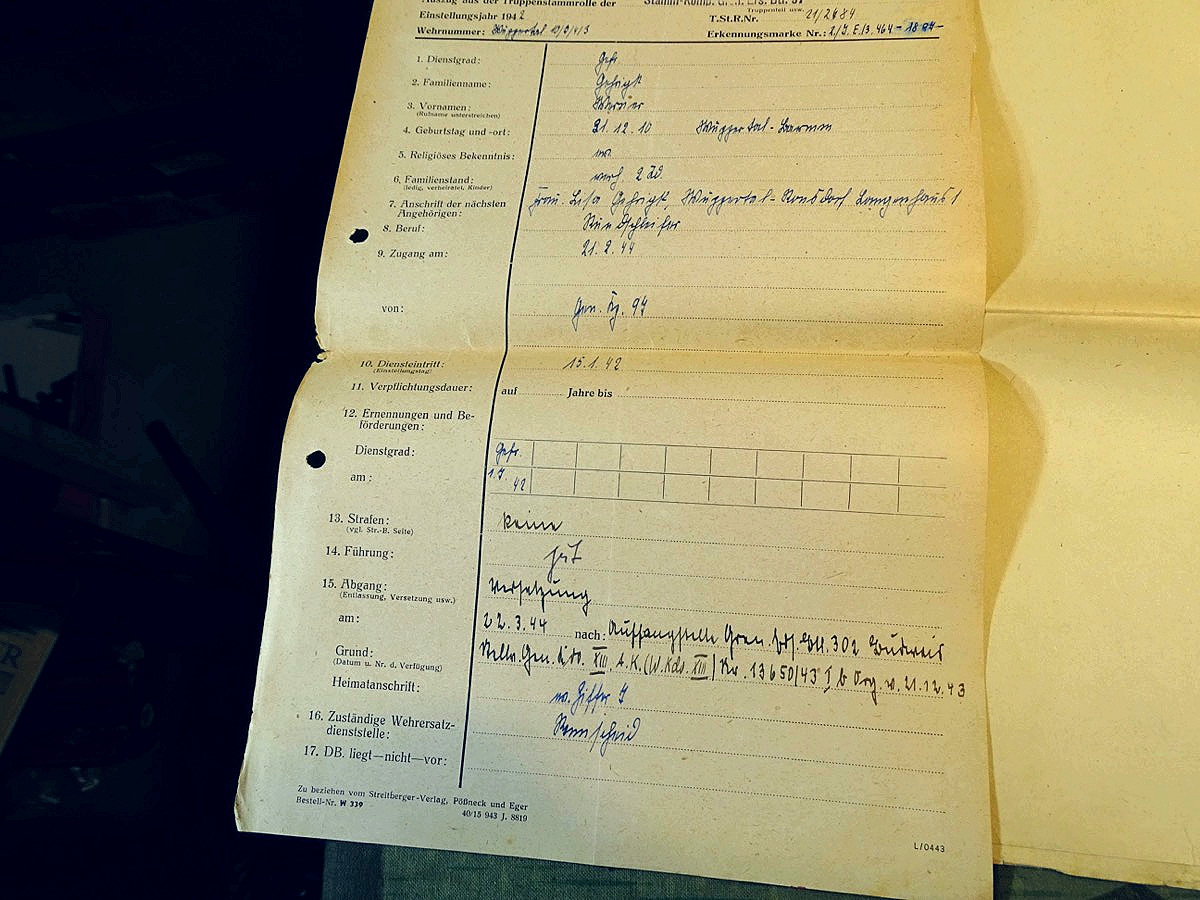 Auszug aus der Truppenstammrolle der Stamm-Komp. Gren. Ers. Btl.
Truppenteil usw.
Einstellungsjahr 1942 T.St.R.Nr. 21/2484
Wehrnummer: Wuppertal Erkennungsmarke Nr.:
1. Dienstgrad: Gefr.
2. Familienname:
3. Vornamen: Werner
(Rufname unterstreichen)
4. Geburtstag und -ort: 21.12.10 Wuppertal-Barmen
5. Religiöses Bekenntnis:
6. Familienstand: verh. 2
(ledig, verheiratet, Kinder)
7. Anschrift der nächsten Angehörigen: Frau Lisa Wuppertal-Ronsdorf Langenhaus 1
8. Beruf: Rundschleifer
9. Zugang am: 21.2.44
von: Gen. Kp. 97
10. Diensteintritt: 15.1.42
(Einstellungstag)
11. Verpflichtungsdauer: auf Jahre bis
12. Ernennungen und Be-
förderungen:
Dienstgrad: Gefr.
am: 1.7.42
13. Strafen: keine
(vgl. Str.-B. Seite)
14. Führung: gut
15. Abgang: Versetzung
(Entlassung, Versetzung usw.)
am: 22.3.44 nach: Auffangstelle Gren. Ers. Btl. 302 Budweis
Grund: Stellv. Gen. Kdo. XIII. A.K. (W.Kdo. XIII) Nr. 13650/43 I b Org. v. 21.12.43
(Datum u. Nr. d. Verfügung)
Heimatanschrift: w. Ziffer 7
16. Zuständige Wehrersatz-
dienststelle: Remscheid
17. DB. liegt—nicht—vor:
Zu beziehen vom Streitberger-Verlag, Pößneck und Eger
Bestell-Nr. W 339 40/15 943 J. 8819
L/0443